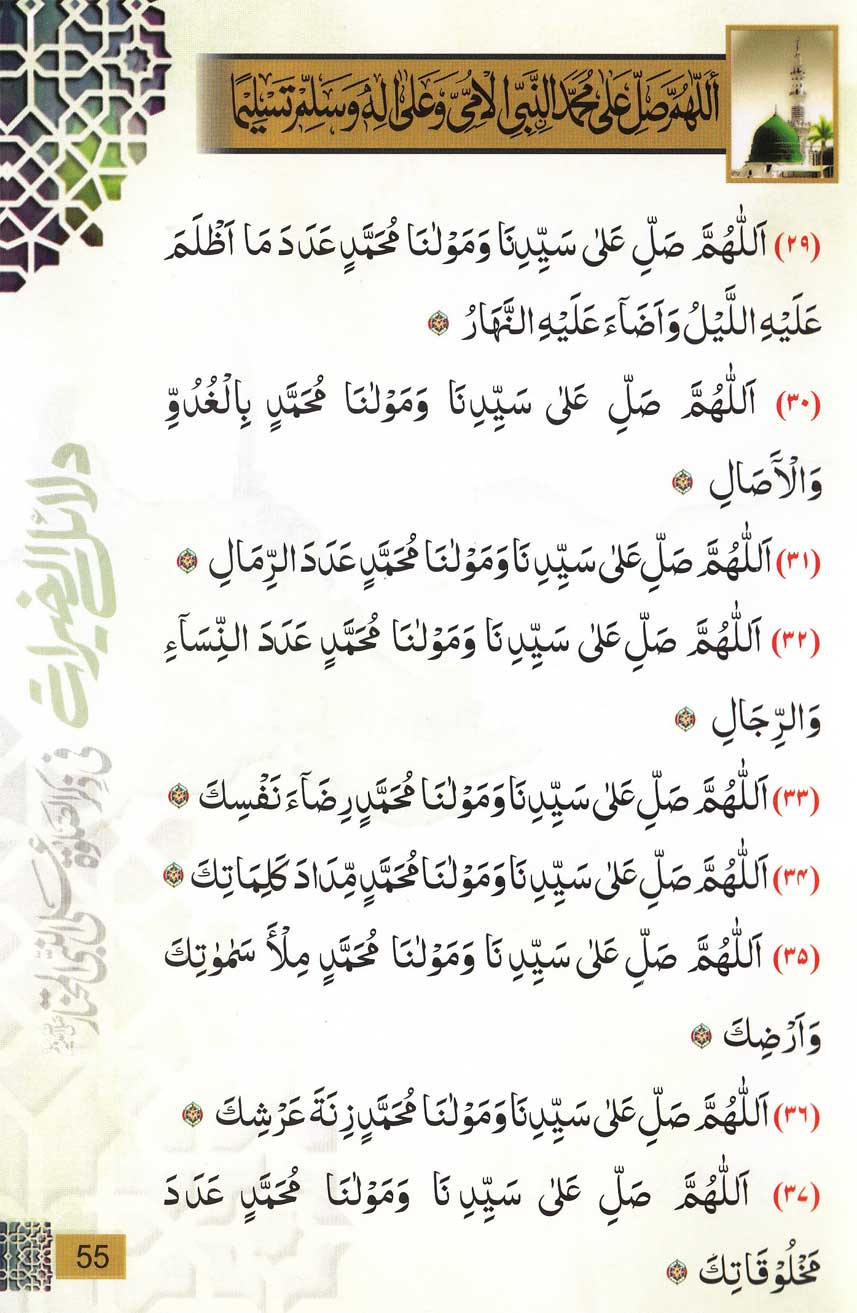 اَللّٰهُمَّ صَلِّ عَلٰی مُحَمَّدِ النَّبِیِّ الْاُمِّیِّ وَعَلٰی اٰلِهٖ وَسَلِّمْ تَسْلِیْمًا
(۲۹) اَللّٰهُمَّ صَلِّ عَلٰى سَيِّدِنَا وَمَوْلٰنَا مُحَمَّدٍ عَدَدَ مَا اَظْلَمَ
عَلَيْهِ اللَّيْلُ وَاَضَآءَ عَلَيْهِ النَّهَارُ
(۳۰) اَللّٰهُمَّ صَلِّ عَلٰى سَيِّدِنَا وَمَوْلٰنَا مُحَمَّدٍ بِالْغُدُوِّ
وَالْاٰصَالِ
(۳۱) اَللّٰهُمَّ صَلِّ عَلٰى سَيِّدِنَا وَمَوْلٰنَا مُحَمَّدٍ عَدَدَ الرِّمَالِ
(۳۲) اَللّٰهُمَّ صَلِّ عَلٰى سَيِّدِنَا وَمَوْلٰنَا مُحَمَّدٍ عَدَدَ النِّسَآءِ
وَالرِّجَالِ
(۳۳) اَللّٰهُمَّ صَلِّ عَلٰى سَيِّدِنَا وَمَوْلٰنَا مُحَمَّدٍ رِضَآءَ نَفْسِكَ
(۳۴) اَللّٰهُمَّ صَلِّ عَلٰى سَيِّدِنَا وَمَوْلٰنَا مُحَمَّدٍ مِّدَادَ كَلِمَاتِكَ
(۳۵) اَللّٰهُمَّ صَلِّ عَلٰى سَيِّدِنَا وَمَوْلٰنَا مُحَمَّدٍ مِلْأَ سَمٰوٰتِكَ
وَاَرْضِكَ
(۳۶) اَللّٰهُمَّ صَلِّ عَلٰى سَيِّدِنَا وَمَوْلٰنَا مُحَمَّدٍ زِنَةَ عَرْشِكَ
(۳۷) اَللّٰهُمَّ صَلِّ عَلٰى سَيِّدِنَا وَمَوْلٰنَا مُحَمَّدٍ عَدَدَ
مَخْلُوْقَاتِكَ
دلائل الخيرات
فی ذکر الصلوة علی النبی المختار
55